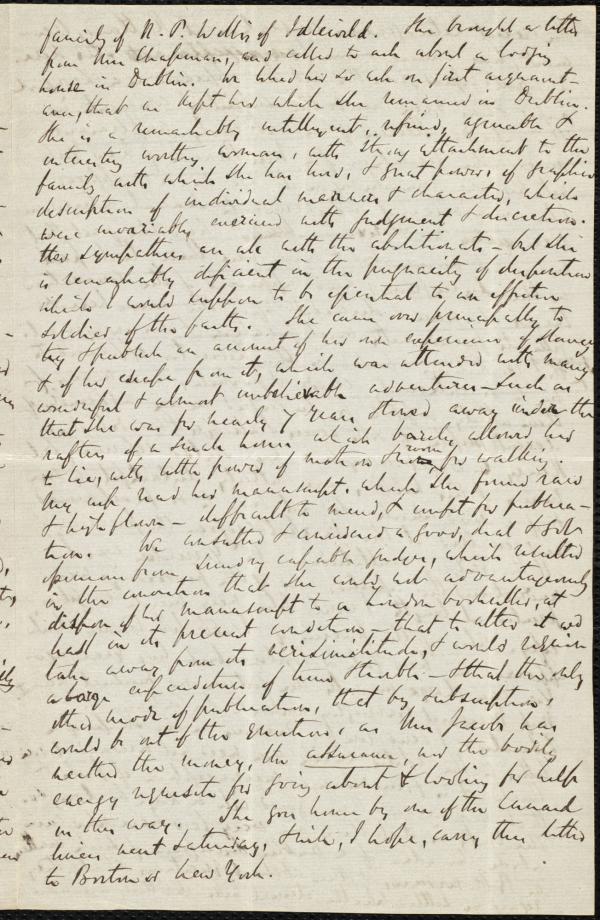 family of N. P. Willis of Idlewild. She brought a letter
from Mrs Chapman, and called to ask about a lodging
house in Dublin. We liked her so well on first acquaint-
ance, that we kept her while she remained in Dublin.
She is a remarkably intelligent, refined, agreeable &
interesting worthy woman, with strong attachment to the
family with which she has lived, & great powers of graphic
description of individual manners & character, which
were invariably exercised with judgment & discretion.
Her sympathies are all with the abolitionists – but she
is remarkably deficient in the pugnacity of disposition
which I would suppose to be essential to an effective
soldier of the faith. She came over principally to
try & publish an account of her own experience of slavery
& of her escape from it, which was attended with many
wonderful & almost unbelievable adventures – such as
that she was for nearly 7 years stowed away under the
rafters of a small house which barely allowed her
to lie, with little power of motion & no room for walking.
My wife read her manuscript, which she found raw
& high flown – difficult to mend, & unfit for publica-
tion. We consulted & considered a good deal & got
opinions from sundry capable judges, which resulted
in the conviction that she could not advantageously
dispose of her manuscript to a London bookseller, at
least in its present condition – that to alter it wd
take away from its verisimilitude, & would require
a large expenditure of time & trouble – & that the only
other mode of publication, that by subscription,
would be out of the question, as Mrs Jacobs has
neither the money, the assurance, nor the bodily
energy requisite for going about & looking for help
in this way. She goes home by one of the Cunard
liners next Saturday, & will, I hope, carry this letter
to Boston or New York.